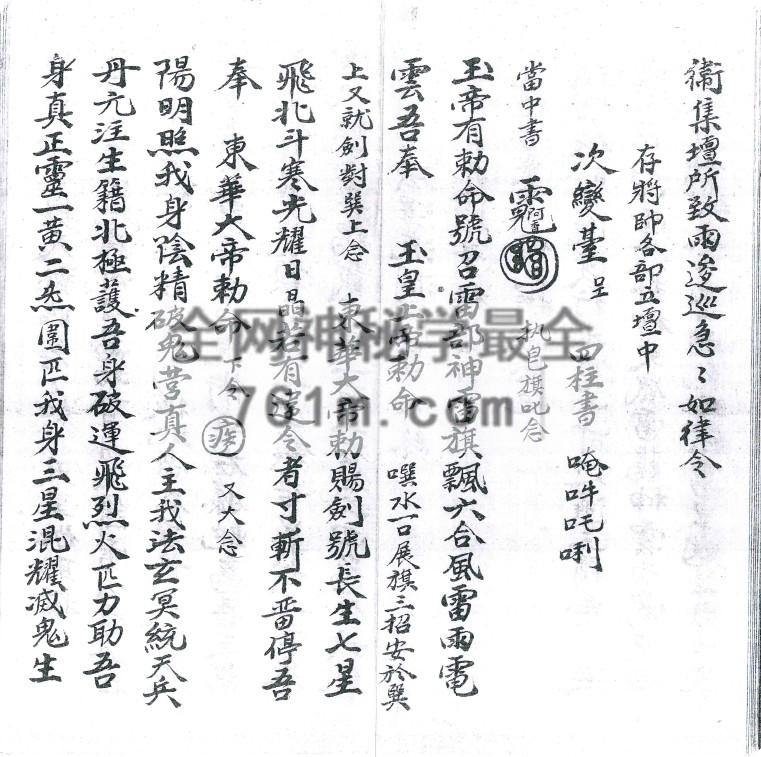 衛集壇所致雨逡巡急〻如律令
存將帥各部立壇中
次變臺呈 四柱書 唵吽吒唎
當中書 執皂旗叱念
玉帝有勅命號召雷部神霄旗飄六合風雷雨電
雲吾奉 玉皇上帝勅命 噀水一口展旗三招安於巽
上又就劍對巽上念 東華大帝勅賜劍號長生七星
飛北斗寒光耀日晶若有違令者寸斬不畱停吾
奉 東華大帝勅命下令 又大念
陽明照我身陰精破鬼營真人主我法玄冥統天兵
丹元注生籍北極護吾身破運飛烈火匹力助吾
身真正靈一黃二炁圍匹我身三星混耀滅鬼生
全网神秘学最全
761m.com